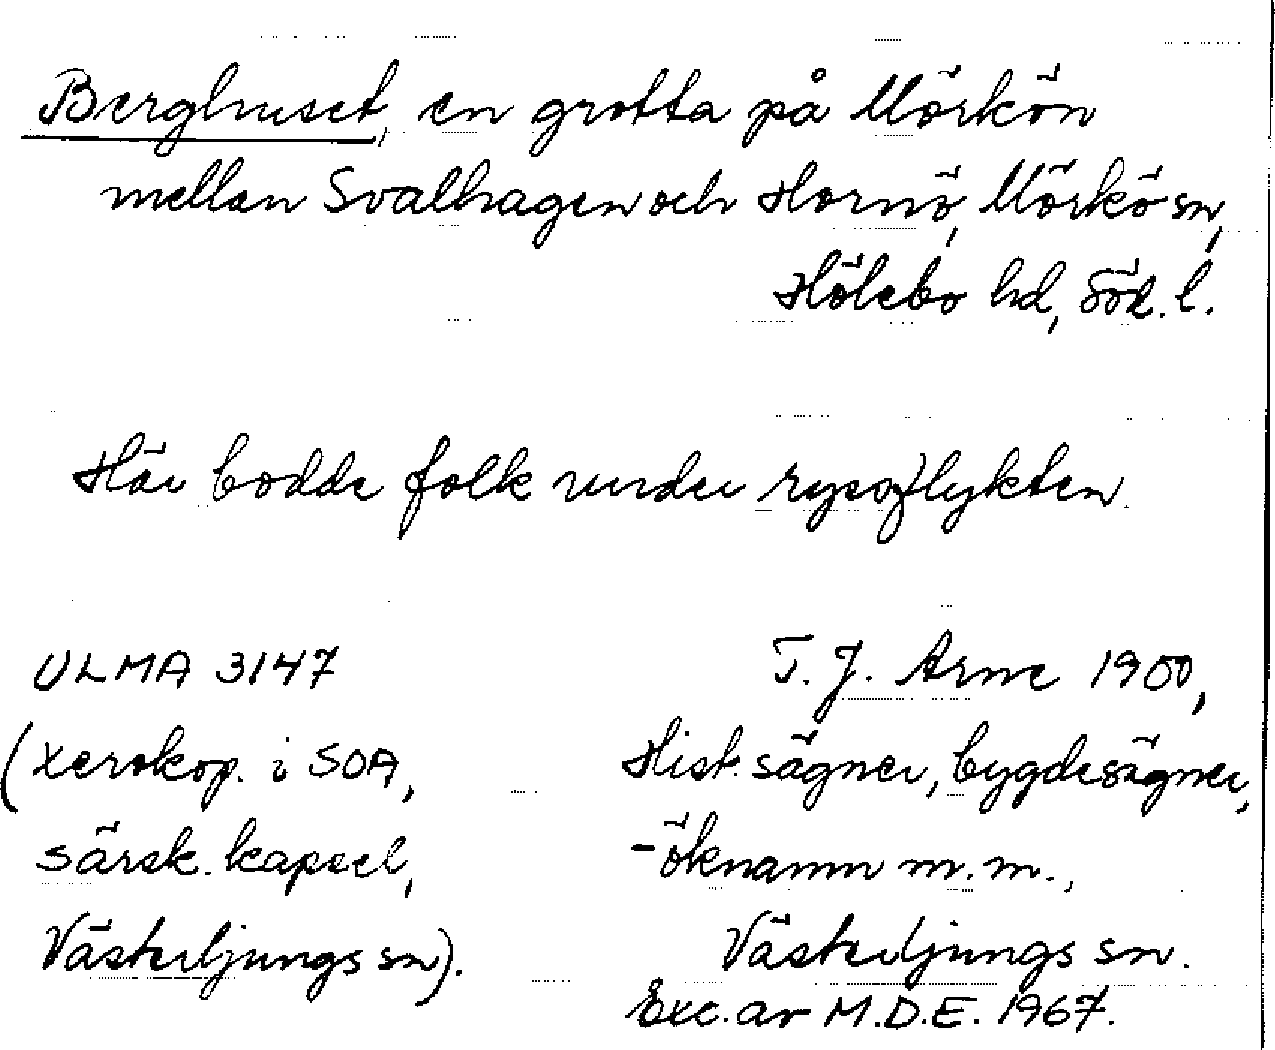 Berghuset, en grotta på Mörkön
mellan Svalhagen och Hornö, Mörkö sn,
Hölebo hd, Söd. l.
Här bodde folk under ryssflykten.
ULMA 3147
(xerokop. i SOA,
särsk. kapsel,
Västerljungs sn).
T. J. Arne 1900,
Hist. sägner, bygdesägner,
-öknamn m.m.,
Västerljungs sn.
Exc. av M.D.E. 1967.